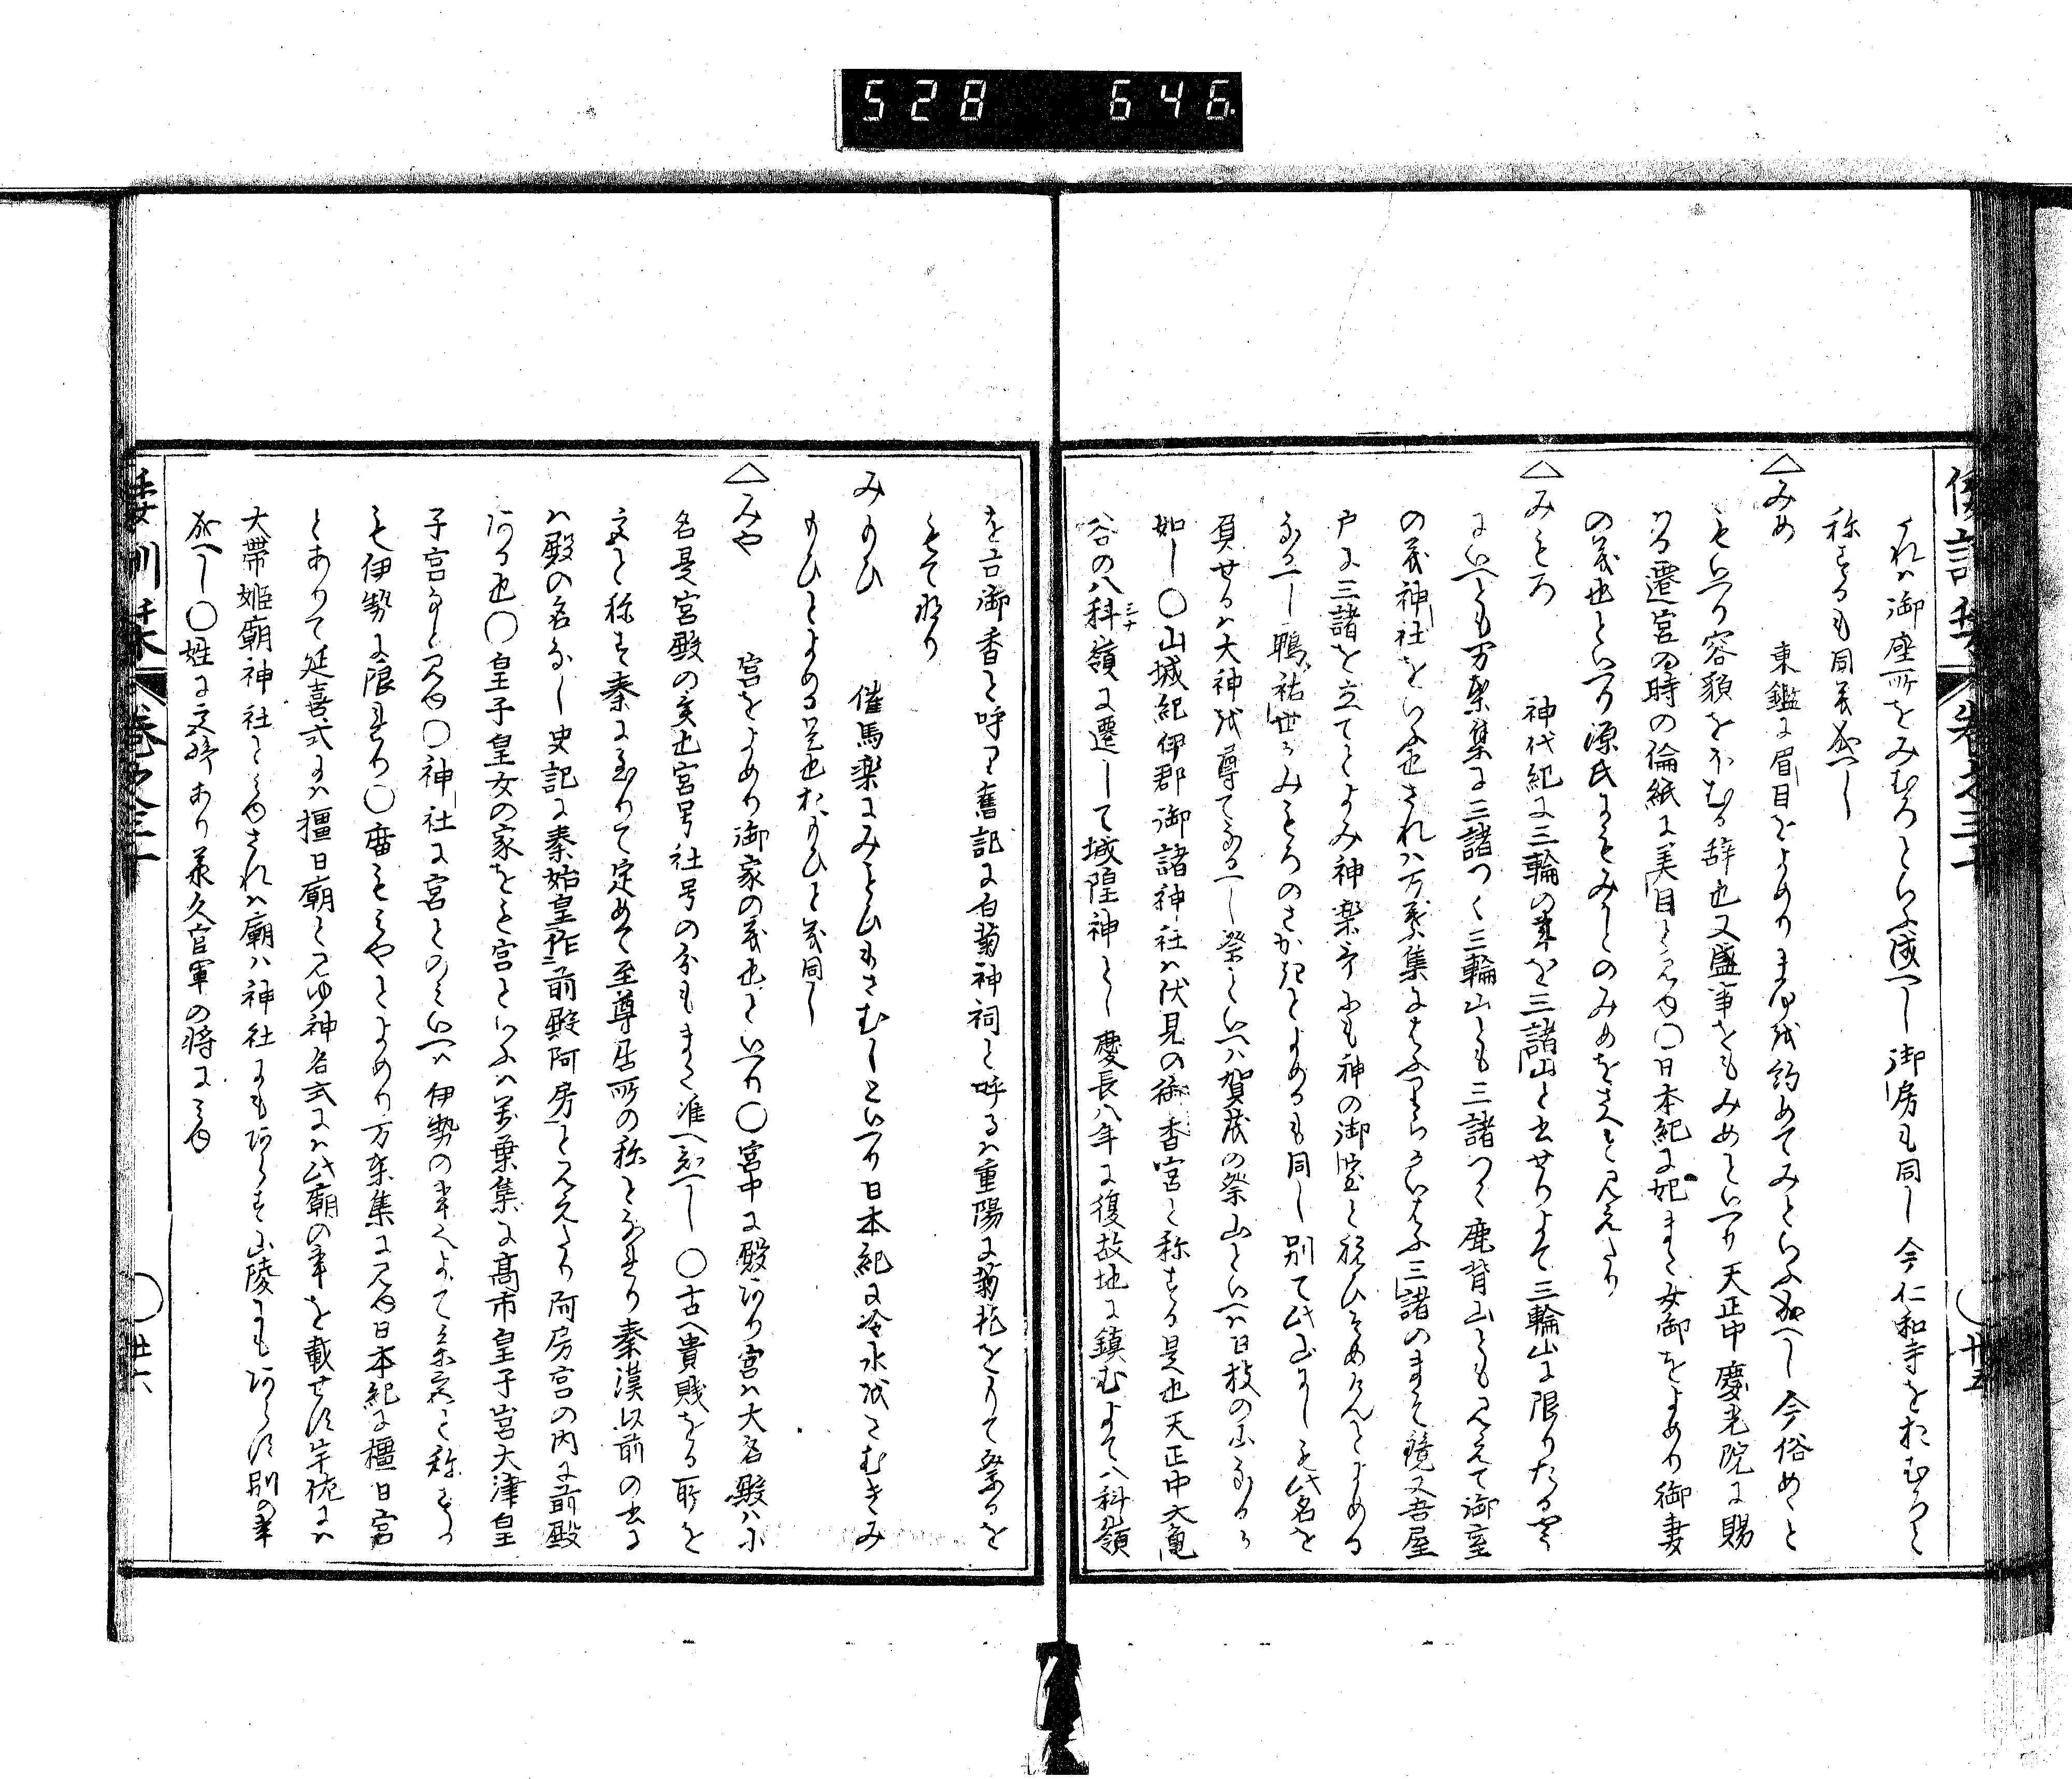 528 646
倭訓栞 巻之三十 ○廿五
れハ御座所をみむろといふ成へし御房も同し今仁和寺をおむろと
称するも同義成へし
△みめ 東鑑に眉目をよめりまゆ反めてみといふ成へし今俗めくと
もいへり容貌をほむる辞也又盛事をもみめといへり天正中慶光院に賜
はる遷宮の時の倫紙に美目と見ゆ○日本紀に妃また女御をよめり御妻
の義也といへり源氏にもみかとのみめをさへと見えたり
△みもろ 神代紀に三輪の事を三諸山と書せりよて三輪山に限りたる如く
にいへとも万葉集に三諸つく三輪山とも三諸つく鹿背山とも見えて御室
の義神社をいふ也されハ万葉集にはふりらかいはふ三諸のまそ鏡又吾屋
戸に三諸を立てとよみ神楽哥にも神の御室と祝ひそめけんとよめる
なるへし鴨祐世かみもろのさか規とよめるも同し別て此山にしも此名を
負せるハ大神を尊てなるへし祭といへハ賀茂の祭山といへハ日枝の山なるか
如し○山城紀伊郡御諸神社ハ伏見の御香宮と称する是也天正中大亀
谷の八科嶺に遷して城隍神とし慶長八年に復故地に鎮むよて八科嶺
を古御香と呼り舊記に白菊神祠と呼るハ重陽に菊花をもて祭るを
もて也
みもひ 催馬楽にみもひもさむしといへり日本紀に冷水をさむきみ
もひとよめる是也おものひと義同し
△みや 宮をよめり御家の義也といへり○宮中に殿あり宮ハ大名殿ハ小
名是宮殿の文也宮号社号の分もまた准へ知へし○古へ貴賤をる所を
宮と称す秦に至りて定めて至尊居所の称となれり秦漢以前の書に
ハ殿の名なし史記に秦始皇作前殿阿房と見えたり阿房宮の内に前殿
ある也○皇子皇女の家をも宮といふハ万葉集に高市皇子宮大津皇
子宮なと見ゆ○神社に宮とのみいへハ伊勢の事にて宗廟と称するの
も伊勢に限れり○庿もみやとよめり万葉集に見ゆ日本紀に橿日宮
とありて延喜式にハ橿日廟と見ゆ神名式にハ此廟の事を載せす宇佐にハ
大帯姫廟神社とみゆされハ廟ハ神社にもあらす山陵にもあらす別の事
成へし○姓に文珠あり承久官軍の将にみゆ
倭訓栞 巻之三十 ○廿六